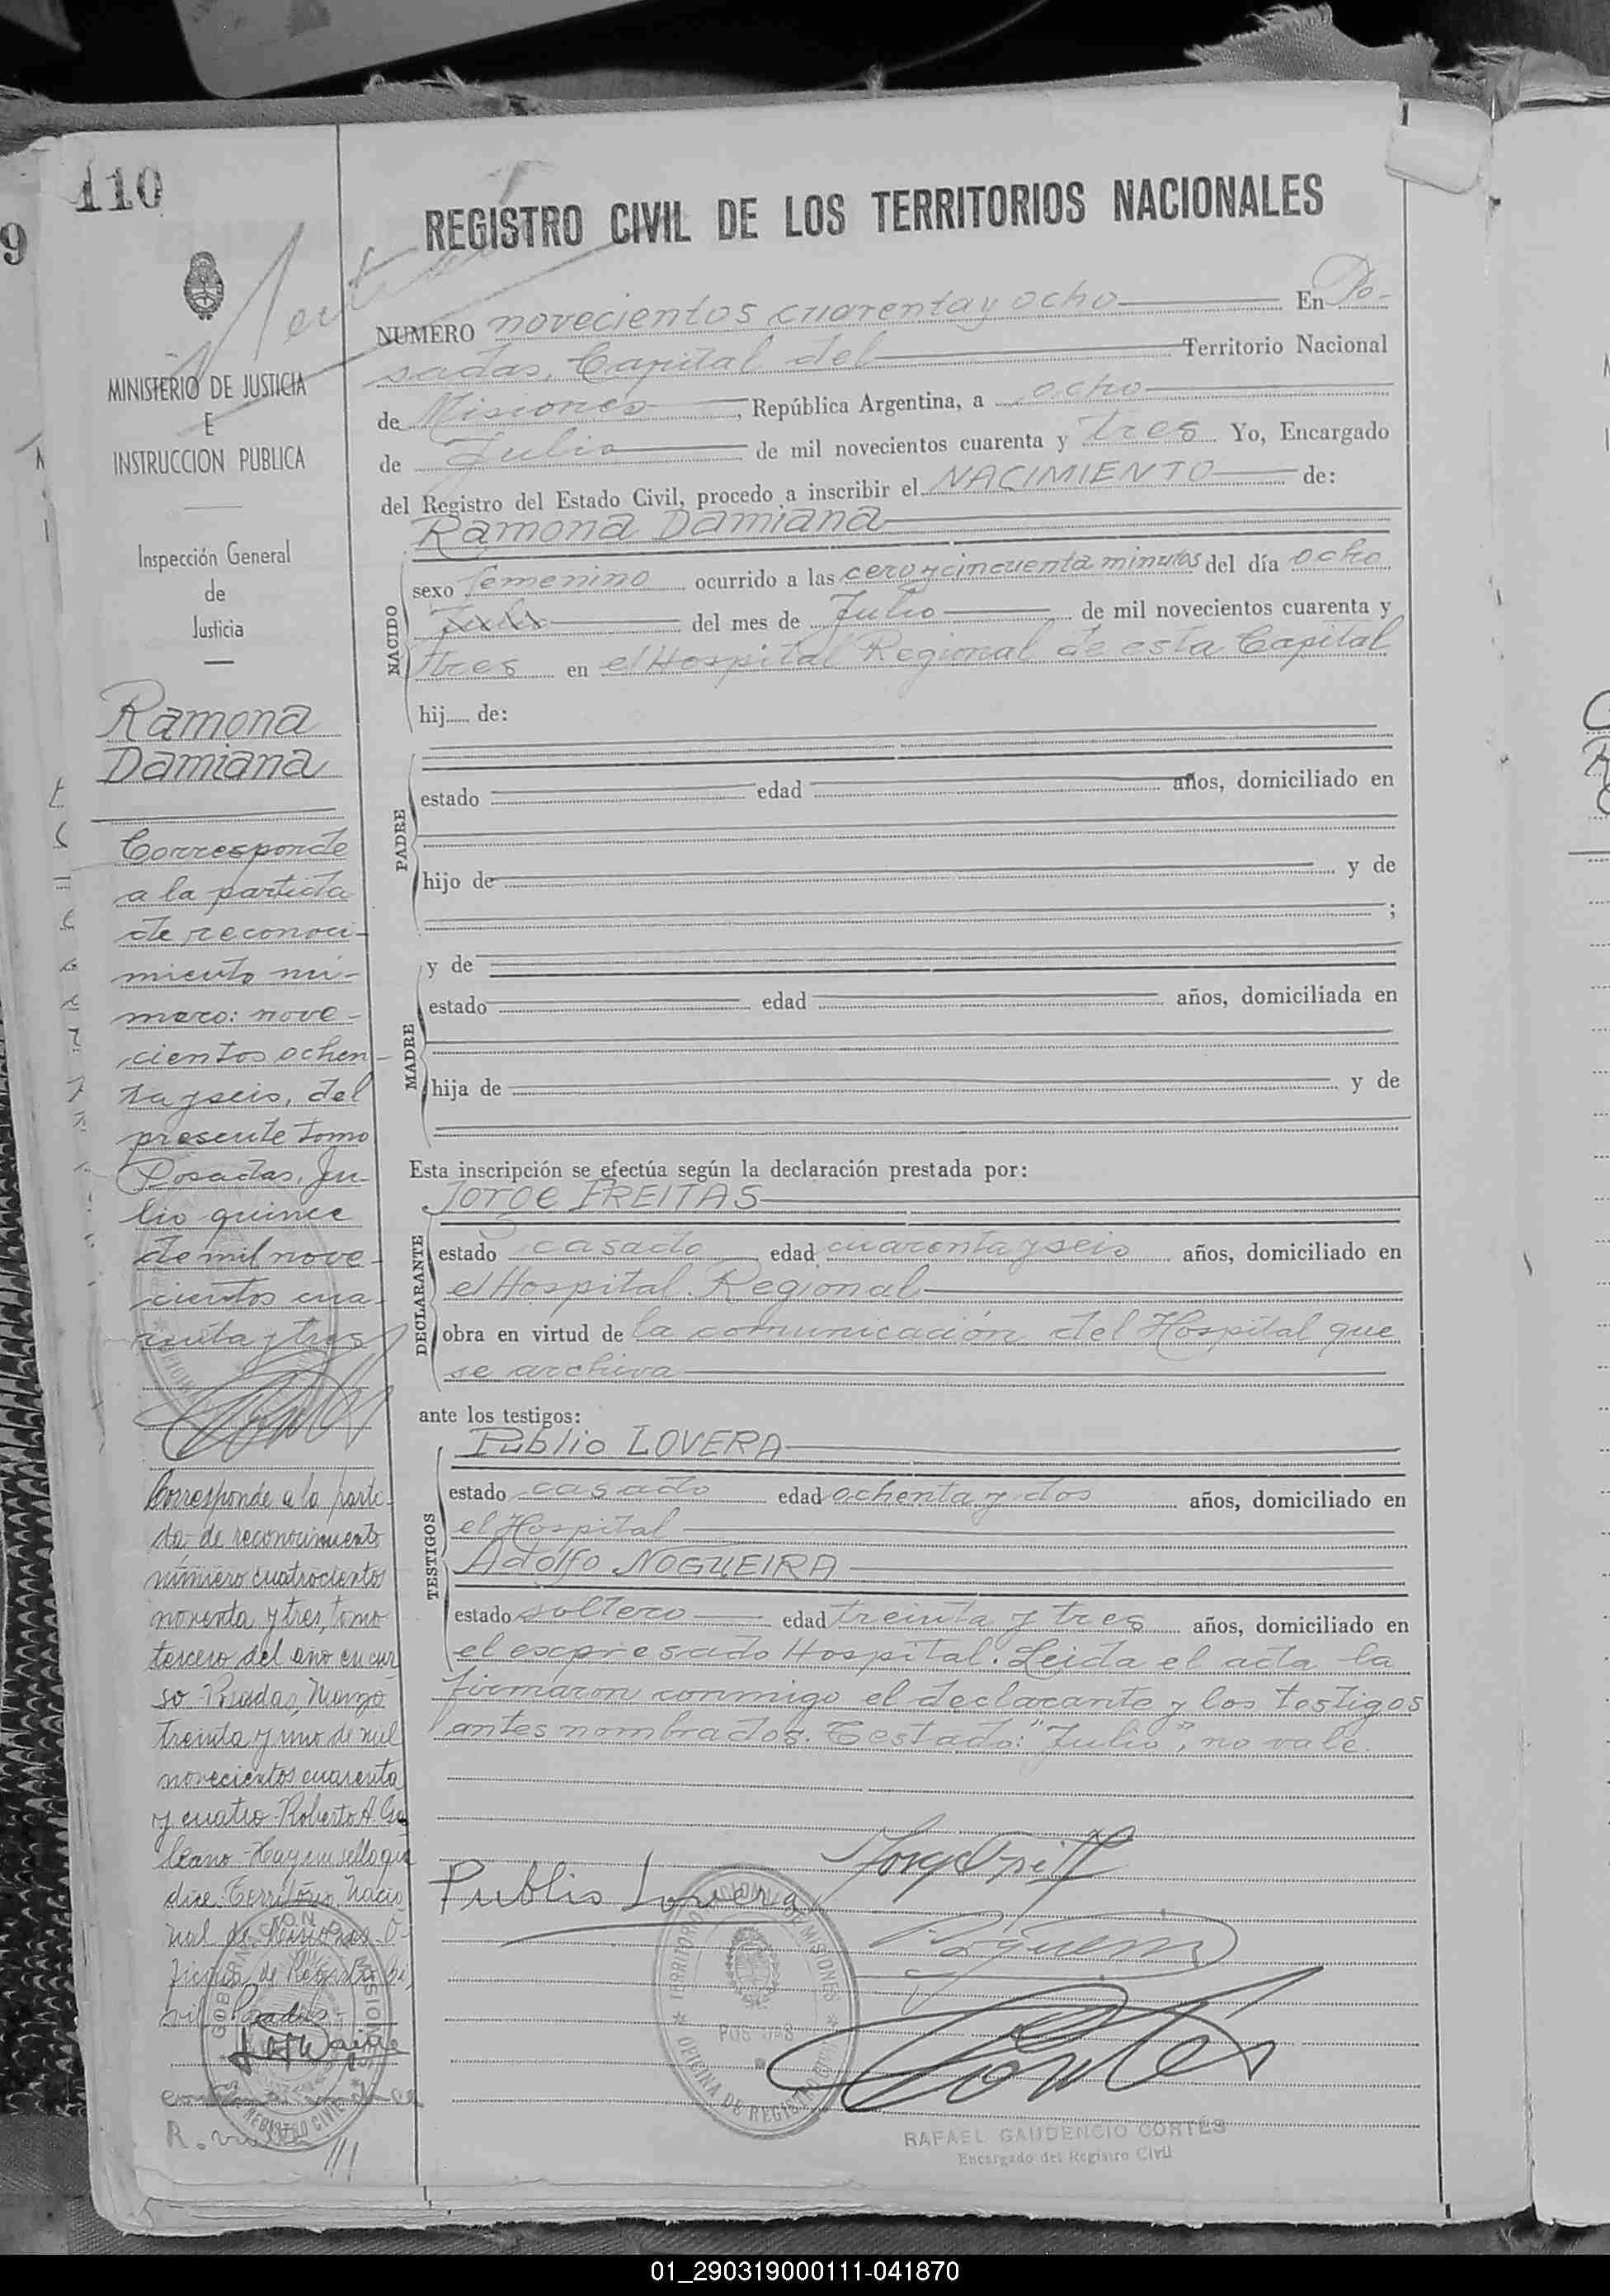 110
9
REGISTRO CIVIL DE LOS TERRITORIOS NACIONALES
NUMERO novecientos cuarenta y ocho En Po-
sadas, Capital del Territorio Nacional
de Misiones, República Argentina, a ocho
de Julio de mil novecientos cuarenta y tres Yo, Encargado
del Registro del Estado Civil, procedo a inscribir el NACIMIENTO de:
Ramona Damiana
NACIDO
sexo femenino ocurrido a las cero y cincuenta minutos del día ocho
Julio del mes de Julio de mil novecientos cuarenta y
tres en el Hospital Regional de esta Capital
hij de:
PADRE
estado edad años, domiciliado en
hijo de y de
;
MADRE
y de
estado edad años, domiciliada en
hija de y de
Esta inscripción se efectúa según la declaración prestada por:
Jorge FREITAS
DECLARANTE
estado casado edad cuarenta y seis años, domiciliado en
el Hospital Regional
obra en virtud de la comunicación del Hospital que
se archiva
ante los testigos:
Publio LOVERA
TESTIGOS
estado casado edad ochenta y dos años, domiciliado en
el Hospital
Adolfo NOGUEIRA
estado soltero edad treinta y tres años, domiciliado en
el expresado Hospital. Leida el acta la
firmaron conmigo el declarante y los testigos
antes nombrados. Testado: "Julio", no vale.
Publio Lovera
TERRITORIO NACIONAL DE MISIONES
POSADAS
OFICINA DE REGISTRO CIVIL
Cortes
RAFAEL GAUDENCIO CORTÉS
Encargado del Registro Civil
MINISTERIO DE JUSTICIA
E
INSTRUCCION PUBLICA
Inspección General
de
Justicia
Ramona
Damiana
Corresponde
a la partida
de reconoci-
miento nú-
mero: nove-
cientos ochen-
ta y seis, del
presente tomo
Posadas, Ju-
lio quince
de mil nove-
cientos cua-
renta y tres
Corresponde a la parti-
da de reconocimiento
número cuatrocientos
noventa y tres, tomo
tercero del año en cur
so Posadas, Marzo
treinta y uno de mil
novecientos cuarenta
y cuatro - Roberto A. Ga
leano - Hay un sello que
dice: Territorio Nacio
nal de Misiones O-
ficina de Registro Ci-
vil Posadas -
REGISTRO CIVIL
01_290319000111-041870